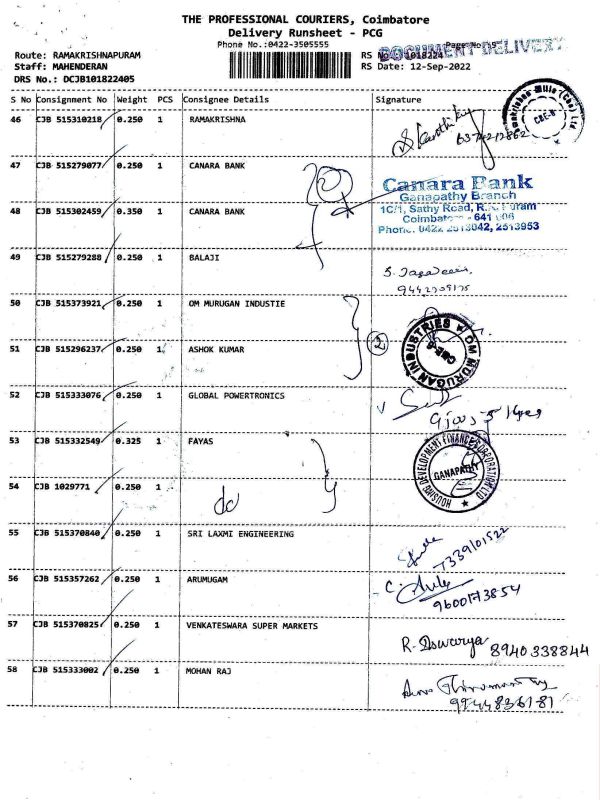 THE PROFESSIONAL COURIERS, Coimbatore
Delivery Runsheet - PCG
Phone No.:0422-3505555
DOCUMENT DELIVERY
Route: RAMAKRISHNAPURAM
Staff: MAHENDERAN
DRS No.: DCJB101822405
RS Date: 12-Sep-2022
S No Consignment No Weight PCS Consignee Details Signature
46 CJB 515310218 0.250 1 RAMAKRISHNA
47 CJB 515279077 0.250 1 CANARA BANK
2
Canara Bank
Ganapathy Branch
1C/1, Sathy Road,
Coimbatore - 641 006
48 CJB 515302459 0.350 1 CANARA BANK
49 CJB 515279288 0.250 1 BALAJI
50 CJB 515373921 0.250 1 OM MURUGAN INDUSTIE
OM MURUGAN INDUSTRIES
CBE-6
2
51 CJB 515296237 0.250 1 ASHOK KUMAR
52 CJB 515333076 0.250 1 GLOBAL POWERTRONICS
53 CJB 515332549 0.325 1 FAYAS
HOUSING DEVELOPMENT FINANCE CORPORATION LTD
GANAPATHY
54 CJB 1029771 0.250 1
55 CJB 515370840 0.250 1 SRI LAXMI ENGINEERING
7339101522
56 CJB 515357262 0.250 1 ARUMUGAM
9600173854
57 CJB 515370825 0.250 1 VENKATESWARA SUPER MARKETS
8940338844
58 CJB 515333002 0.250 1 MOHAN RAJ